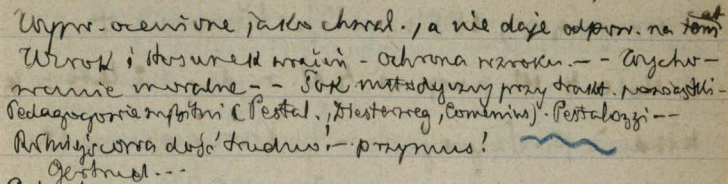 Wypr. ocenione jako chwal., a nie daje odpow. na temat
Wzrok i stosunek wrażeń - ochrona wzroku. - - Wycho-
wanie moralne - - Tok metodyczny przy trakt. powiastki -
Pedagogowie wybitni (Pestal., Diesterweg, Comenius). Pestalozzi --
dość trudno! - przymus!
Gertrud...